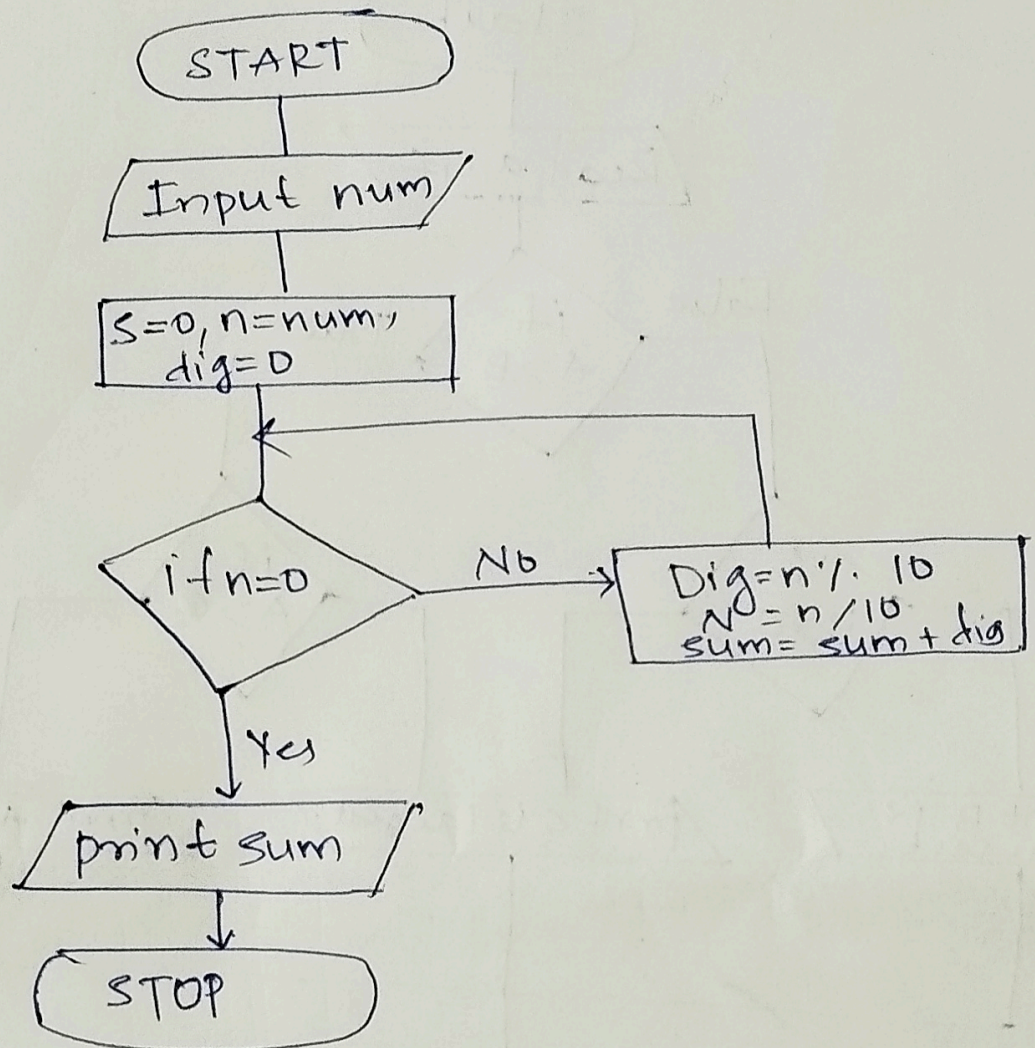 START
Input num
S=0, n=num,
dig=0
if n=0
No
Dig=n%. 10
N=n/10
sum= sum + dig
Yes
print sum
STOP